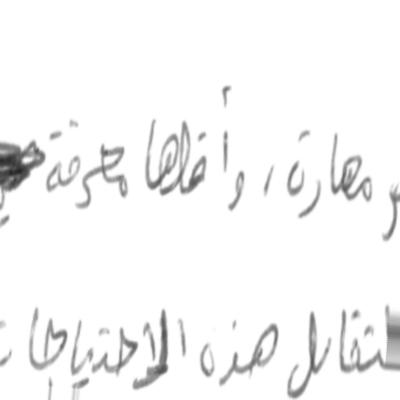 مهارة، وأقلها معرفة
تقابل هذه الاحتياجات